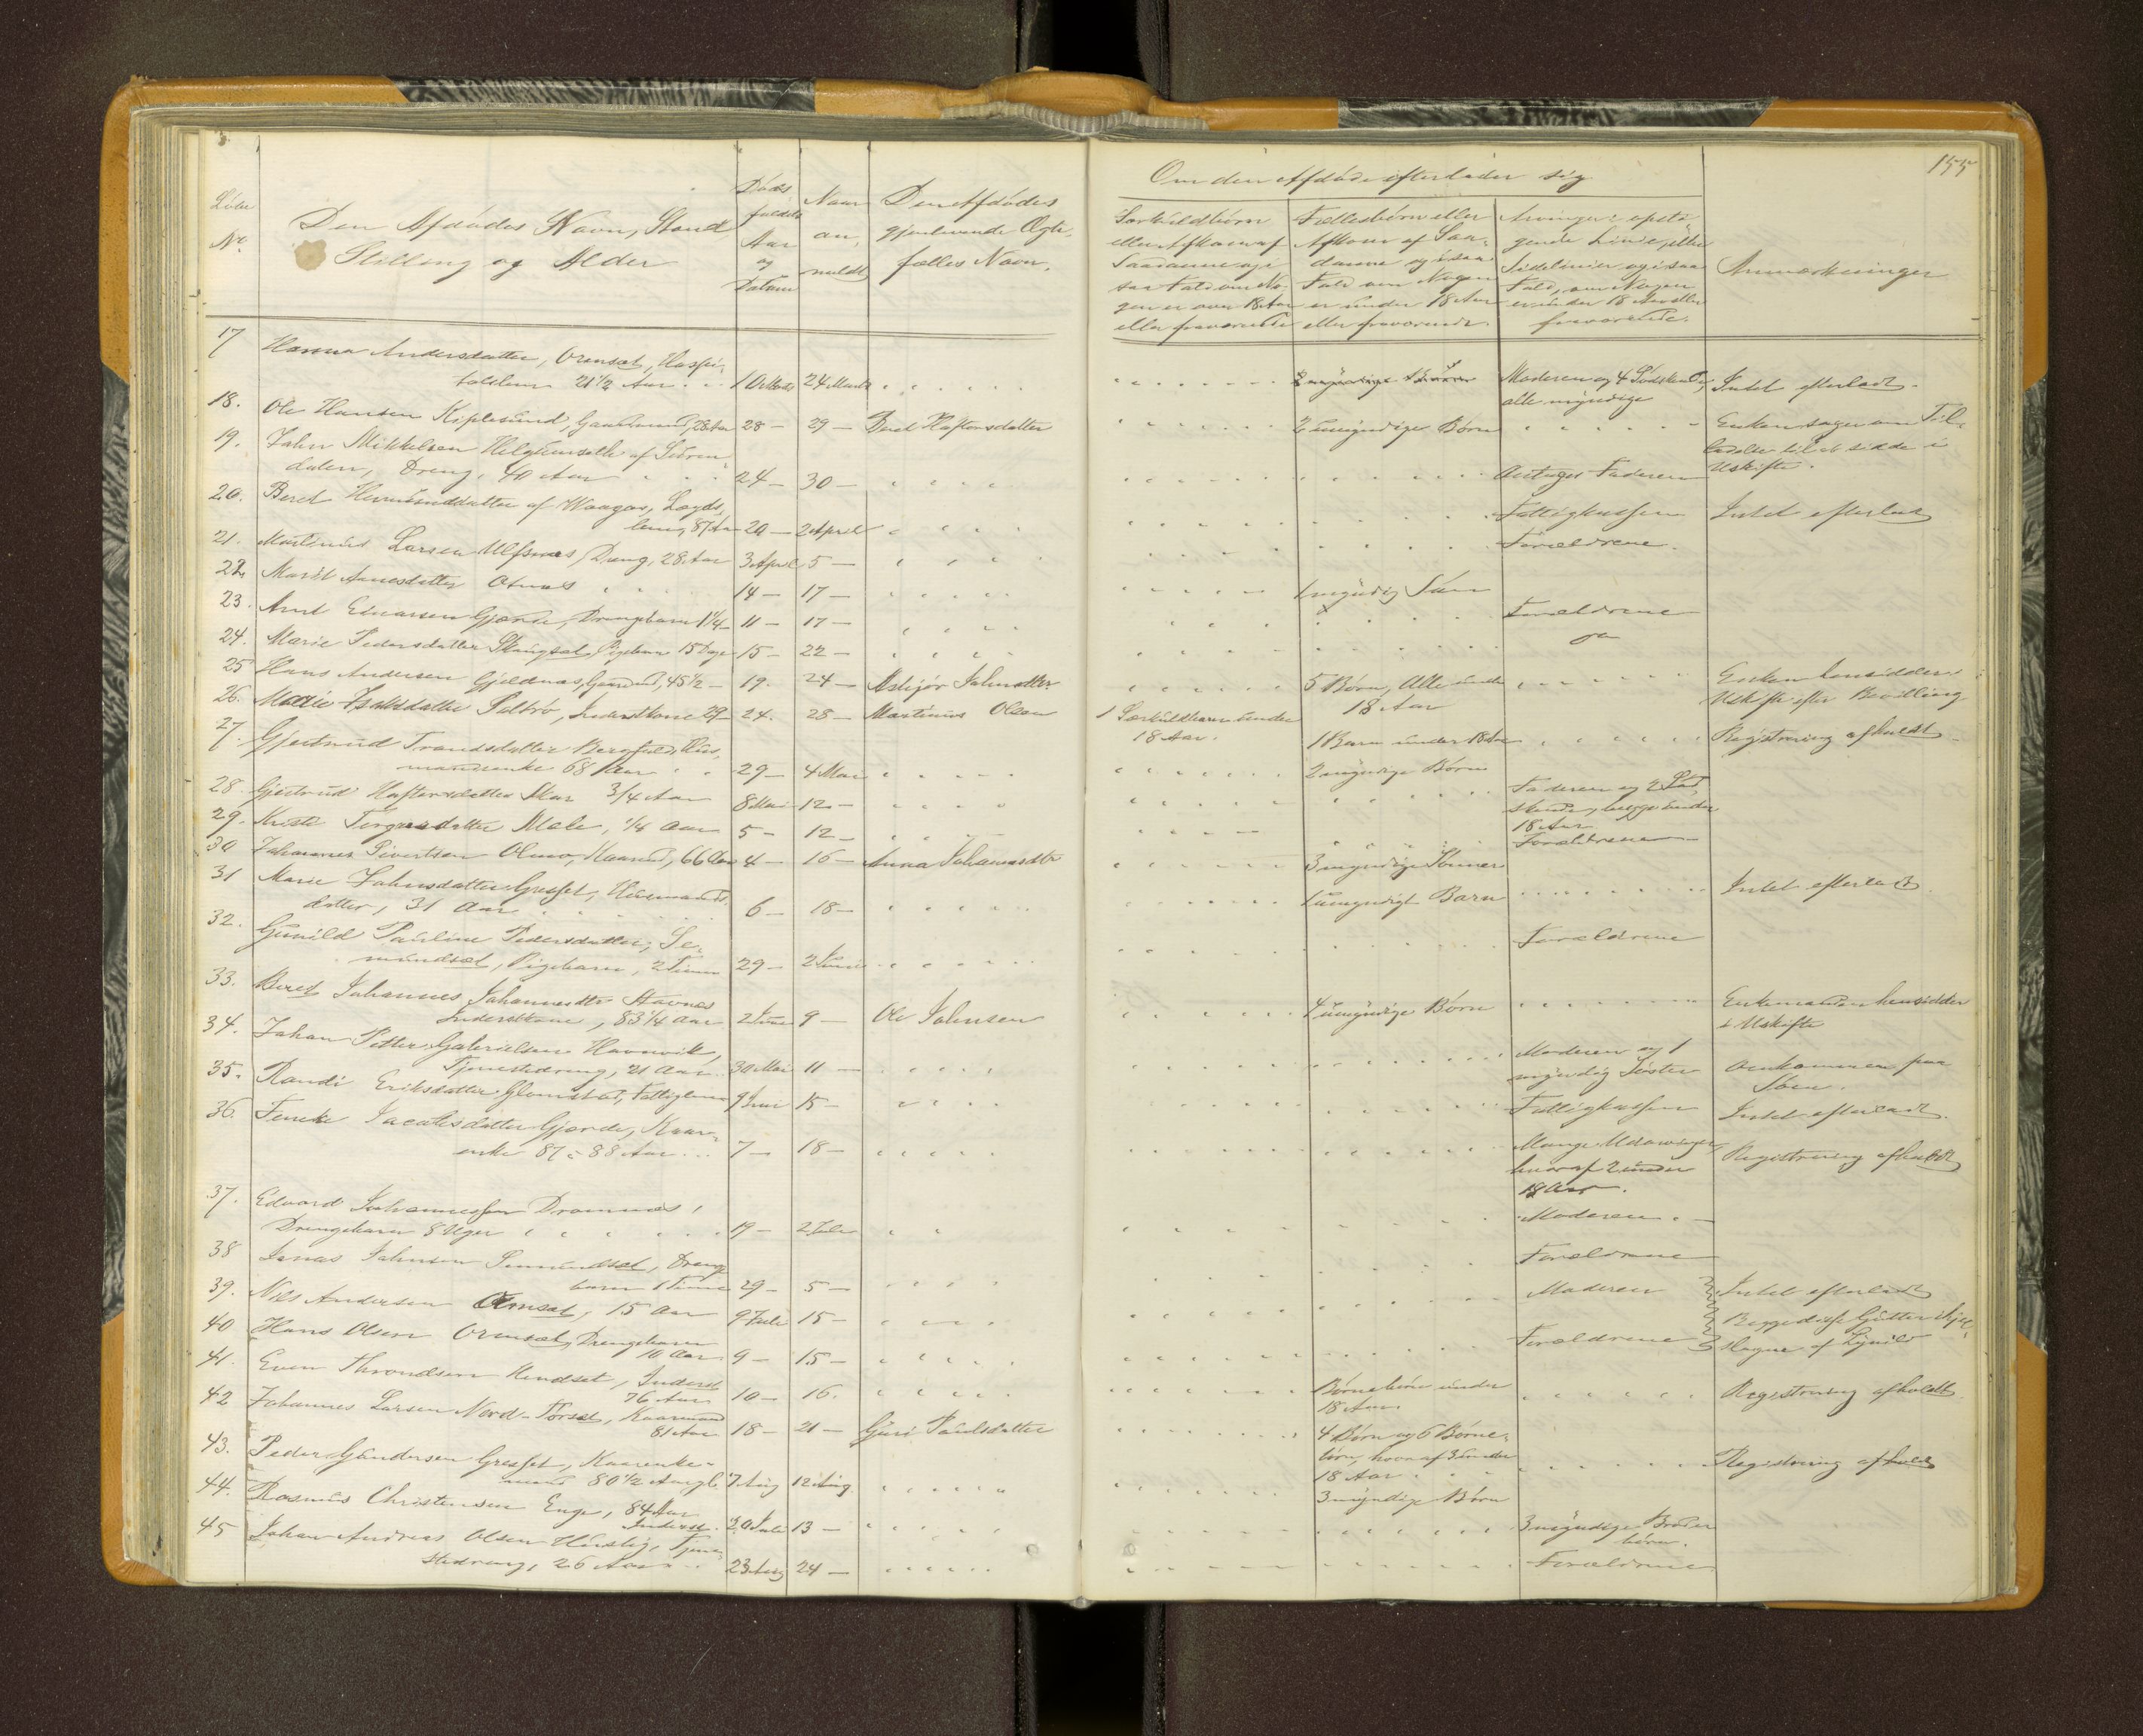 155
Løbe
No.
Den Afdødes Navn, Stand
Stilling og Alder
Døds
faldets
Aar
og
Datum
Naar
an-
meldt
Den Afdødes
gjenlevende Ægte-
fælles Navn.
Om den Afdøde efterlader sig
Særkuldbørn
eller Afkom af
Saadanne og i
saa Fald om No-
gen er over 18 Aar
eller fraværende
Fællesbørn eller
Afkom af Saa-
danne og i saa
Fald om Nogen
er under 18 Aar
eller fraværende.
Arvinger i opsti-
gende Linie, eller
Sidelinier og i saa
Fald, om Nogen
er under 18 Aar eller
fraværende.
Anmærkninger
17 Hanna Andersdatter, Orensæt, Hospi-
talslem 21 1/2 Aar 10 Marts 24 Marts Moderen og 4 Sødskende, Intet efterladt.
alle myndige
18. Ole Hansen Kiplesund, Gaardmand, 28 Aar 28 — 29 — Beret Haftorsdatter 2 umyndige Børn Enken søger om Til-
ladelse til at sidde i
Uskifte.
19. John Mikkelsen af Suren-
dalen, Dreng, 40 Aar 24 — 30 — Antages Faderen
20. Beret af Waagos, Lægds-
lem, 87 Aar 20 — 2 April Fattigkassen Intet efterladt
21. Martinus Larsen Ulfsnes, Dreng, 28 Aar 3 April 5 — Forældrene.
22. Marit Arnesdatter Otnes 14 — 17 — 1 myndig Søn
23. Arnt Edvarsen Gjærde, Drengebarn 1 1/4 11 — 17 — Forældrene
24. Marie Pedersdatter Skaugset, Pigebarn 15 Dage 15 — 22 —
25 Hans Andersen Gjeldnæs, Gaardmd, 45 1/2 — 19. 24 — Asbjør Johnsdtr 5 Børn, Alle under
18 Aar Enken hensidder i
Uskifte efter Bevilling
26. Marie Isaksdatter, Inderstkone 29 — 24. 28 — Martinus Olsen 1 Særkuldbarn under
18 Aar. 1 Barn under 18 Aar Registrering afholdt
27. Gjertrud Trondsdatter Bergfald, Huus-
mandsenke 68 Aar 29 — 4 Mai 2 myndige Børn
28. Gjertrud Haftorsdatter Skar 3/4 Aar 8 Mai 12 — Faderen og 2 Sød-
skende, begge under
18 Aar
29. Kristi Torgersdatter Mæle, 1/4 Aar 5 — 12 — Forældrene
30 Johannes Sivertsen Olmo, Kaarmd, 66 Aar 4 — 16 — Anna Johannesdtr 3 myndige Sønner
31 Marie Johnsdatter Gresset, Huusmands-
datter, 31 Aar 6 — 18 — 1 umyndigt Barn Intet efterladt.
32. Gunild Pauline Pedersdatter, Se-
mundset, Pigebarn, 2 Timer 29 — 2 Juni Forældrene
33. Beret Johannes Johannesdtr Stavnes
Inderstkone, 83 1/4 Aar 2 Juni 9 — Ole Johnsen 4 umyndige Børn Enkemanden hensidder
i Uskifte
34. Johan Petter Gabrielsen Havnvik,
Tjenestedreng, 21 Aar 30 Mai 11 — Moderen og 1
myndig Søster Omkommen paa
Søen.
35. Randi Eriksdatter Glomstat, Fattiglem 9 Juni 15 — Fattigkassen Intet efterladt.
36. Jacobsdatter Gjærde, Kaar-
enke 87 à 88 Aar 7 — 18 — Mange Udarvinger,
hvoraf 2 under
18 Aar. Registrering afholdt
37. Edvard Johannessen Dromnes,
Drengebarn 8 Uger 19 — 2 Juli Moderen.
38 Jonas Johnsen Semundset, Drenge-
barn 1 Time 29 — 5 — Forældrene
39. Nils Andersen Orensæt, 15 Aar 9 Juli 15 — Moderen Intet efterladt
40 Hans Olsen Orensæt, Drengebarn
10 Aar 9 — 15 — Forældrene Begge disse Gutter ihjel-
slagne af Lynild
41. Even Throndsen Hendset, Inderst
76 Aar 10 — 16. Børnebørn under
18 Aar. Registrering afholdt
42 Johannes Larsen Nord-Torset, Kaarmand
81 Aar 18 — 21 — Guri Paulsdatter 4 Børn og 6 Børne-
børn, hvoraf 3 under
18 Aar Registrering afholdt
43. Peder Gundersen Gresset, Kaarenke-
mand 80 1/2 Aar gl. 7 Aug 12 Aug. 3 myndige Børn
44. Rasmus Christensen Enge, 84 Aar
Inderst. 20 Juli 13 — 3 myndige Broder
børn.
45 Johan Andreas Olsen, Tjene-
stedreng, 26 Aar 23 Aug 24 — Forældrene